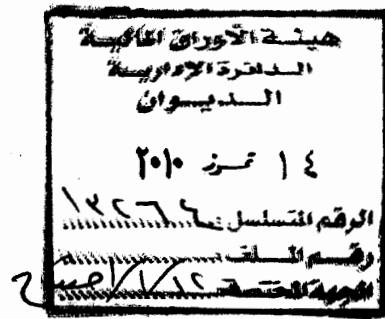 هيئة الأوراق المالية
الدائرة الإدارية
الديوان
١٤ تموز ٢٠١٠
الرقم المتسلسل
رقم الملف
الجهة المختصة